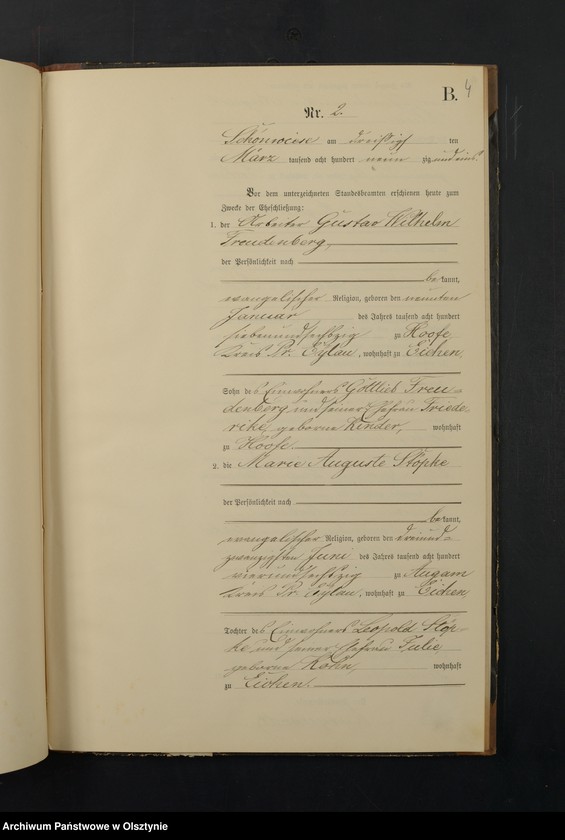 B. 4
Nr. 2
Schönwiese am dreißigsten
März tausend acht hundert neun zig und eins.
Vor dem unterzeichneten Standesbeamten erschienen heute zum
Zwecke der Eheschließung:
1. der Arbeiter Gustav Wilhelm
Freudenberg,
der Persönlichkeit nach
bekannt,
evangelischer Religion, geboren den neunten
Januar des Jahres tausend acht hundert
siebenundsechszig zu Hoofe
Kreis Pr. Eylau, wohnhaft zu Eichen,
Sohn des Einwohners Gottlieb Freu-
denberg und seiner Ehefrau Friede-
rike, geborne Linder, wohnhaft
zu Hoofe
2. die Marie Auguste Stöpke
der Persönlichkeit nach
bekannt,
evangelischer Religion, geboren den dreiund-
zwanzigsten Juni des Jahres tausend acht hundert
vierundsechszig zu Augam
Kreis Pr. Eylau, wohnhaft zu Eichen,
Tochter des Einwohners Leopold Stöp-
ke und seiner Ehefrau Julie
geborne Kohn, wohnhaft
zu Eichen.
Archiwum Państwowe w Olsztynie